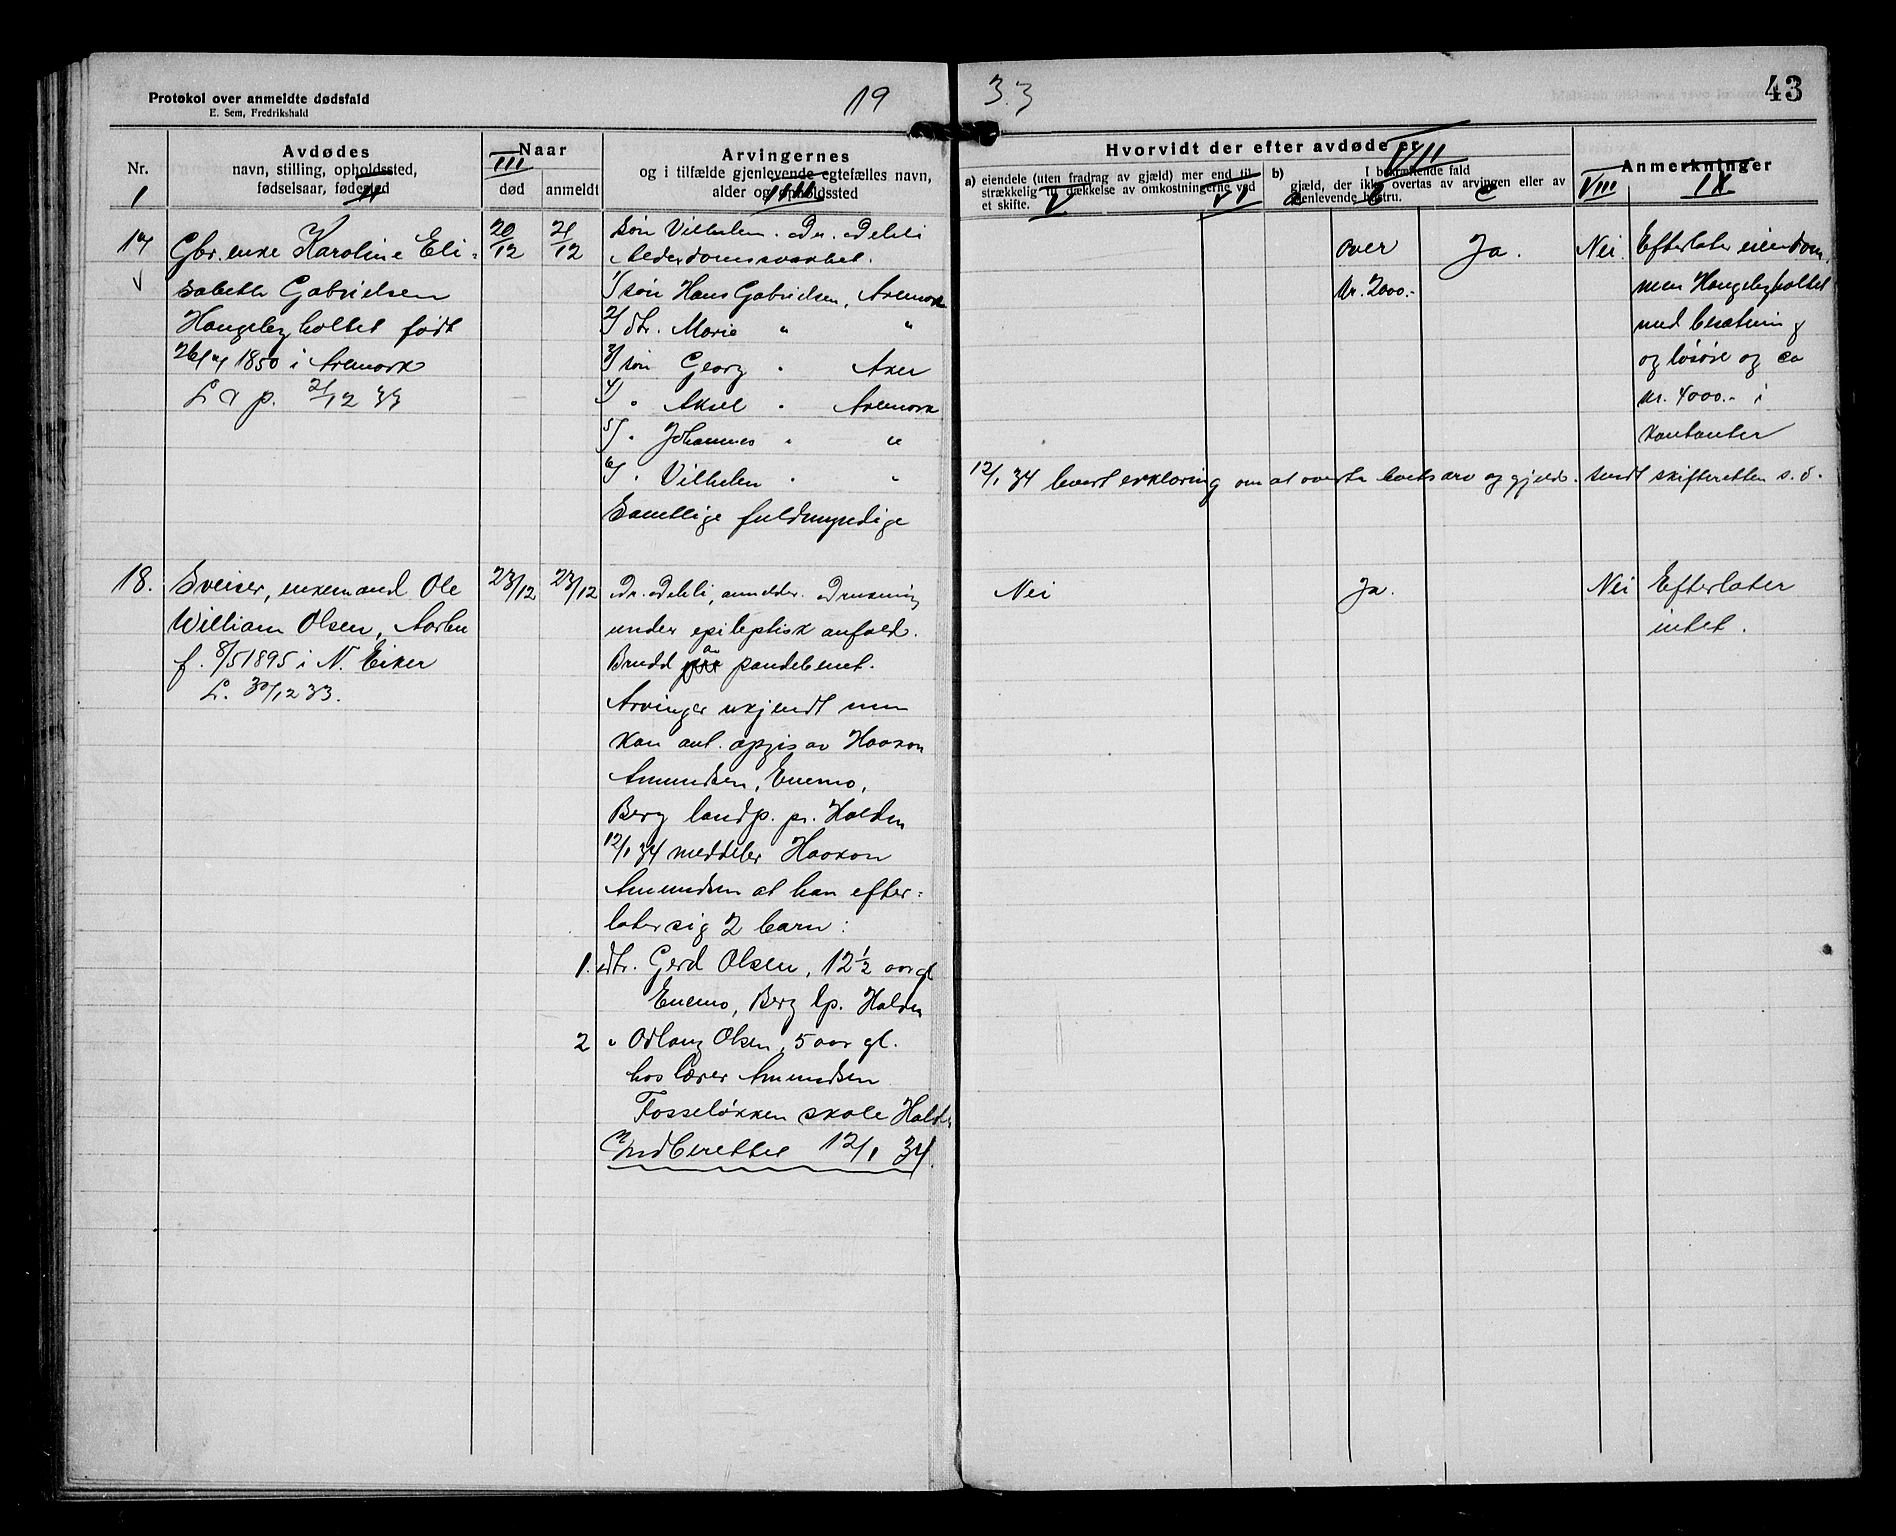 Protokol over anmeldte dødsfald
E. Sem, Fredrikshald
19
33
43
Nr.
1
Avdødes
navn, stilling, opholdssted,
fødselsaar, fødested
II
Naar
III
død
anmeldt
Arvingernes
og i tilfælde gjenlevende egtefælles navn,
alder og opholdssted
IIII
Hvorvidt der efter avdøde er
VII
a) eiendele (uten fradrag av gjæld) mer end til-
strækkelig til dækkelse av omkostningerne ved
et skifte.
V
VI
b)
I bekræftende fald
gjæld, der ikke overtas av arvingen eller av
gjenlevende hustru.
a
b
c
VIII
Anmerkninger
IX
17
Gbr. enke Karoline Eli-
sabeth Gabrielsen
Haugeby holtet født
26/4 1850 i Aremark
L & p. 21/12 33
20/12
21/12
Søn Vilhelm. Dr. Dehli
Alderdomssvakhet.
1/ søn Hans Gabrielsen, Aremark
2/ dtr. Marie " "
3/ søn Georg " Aker
4/ " Aksel " Aremark
5/ " Johannes " "
6/ " Vilhelm " "
Samtlige fuldmyndige
over
kr. 2000.-
Ja.
Nei.
Efterlater eiendom
men Haugebyholtet
med besætning
og løsøre og ca
kr. 4000.- i
kontanter
12/1 34 levert erklæring om at overta boets arv og gjeld. Sendt skifteretten s.d.
18.
Sveiser, enkemand Ole
William Olsen, Aarbu
f. 8/5 1895 i N. Eiker
L. 30/12 33.
23/12
23/12
Dr. Dehli, anmelder. Drukning
under epileptisk anfald.
Brudd paa pandebenet.
Arvinger ukjendt men
kan ant. opgis av Haakon
Amundsen, Enemo,
Berg landp. pr. Halden
12/1 34 meddeler Haakon
Amundsen at han efter-
later sig 2 barn:
1. dtr. Gerd Olsen, 12 1/2 aar gl
Enemo, Berg lp. Halden
2 " Odlaug Olsen, 5 aar gl.
hos lærer Amundsen
Fosseløkken skole Halden
Indberettet 12/1 34.
Nei
Ja.
Nei
Efterlater
intet.